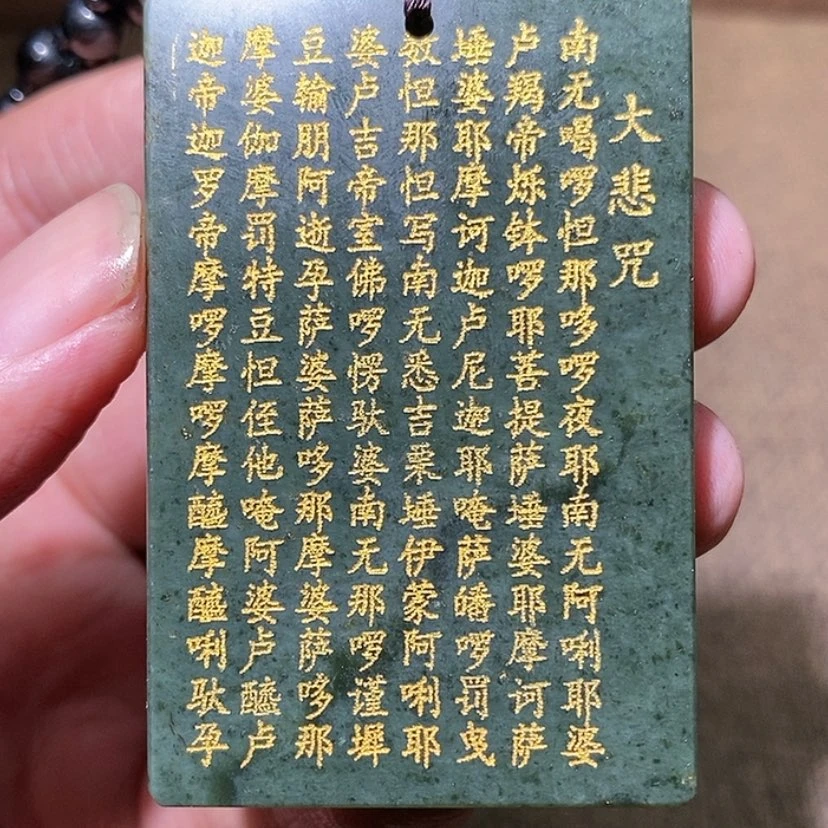 大悲咒
南无喝啰怛那哆啰夜耶南无阿唎耶婆
卢羯帝烁钵啰耶菩提萨埵婆耶摩诃萨
埵婆耶摩诃迦卢尼迦耶唵萨皤啰罚曳
数怛那怛写南无悉吉栗埵伊蒙阿唎耶
婆卢吉帝室佛啰愣驮婆南无那啰谨墀
豆输朋阿逝孕萨婆萨哆那摩婆萨哆那
摩婆伽摩罚特豆怛侄他唵阿婆卢醯卢
迦帝迦罗帝摩啰摩啰摩醯摩醯唎驮孕